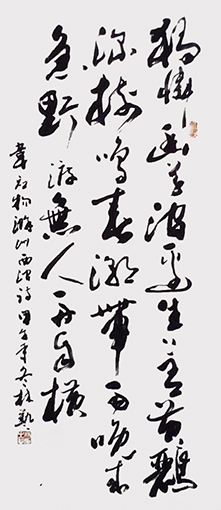 獨憐幽草澗邊生上有黃鸝
深樹鳴春潮帶雨晚來
急野渡無人舟自橫
韋應物滁州西澗詩甲午年冬